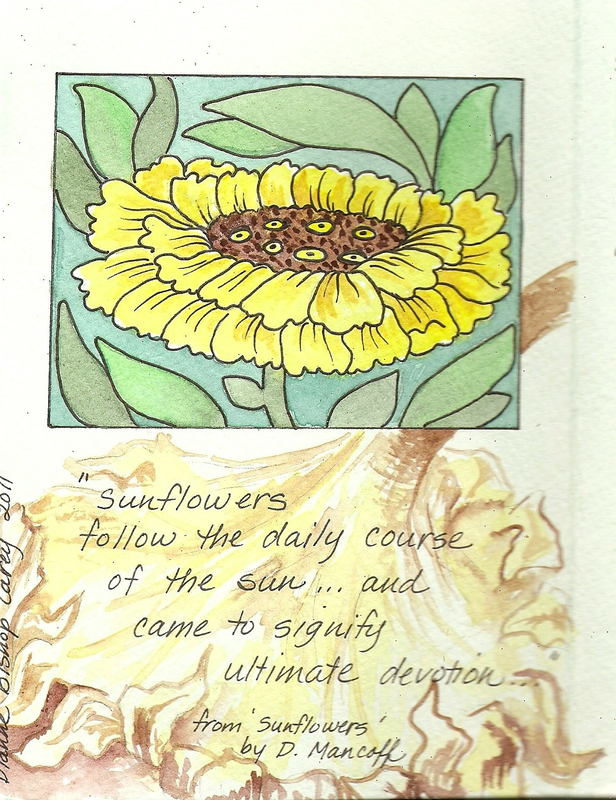 "Sunflowers
follow the daily course
of the sun... and
came to signify
ultimate devotion...
from 'Sunflowers'
by D. Mancoff
Dianne Bishop Carey 2011